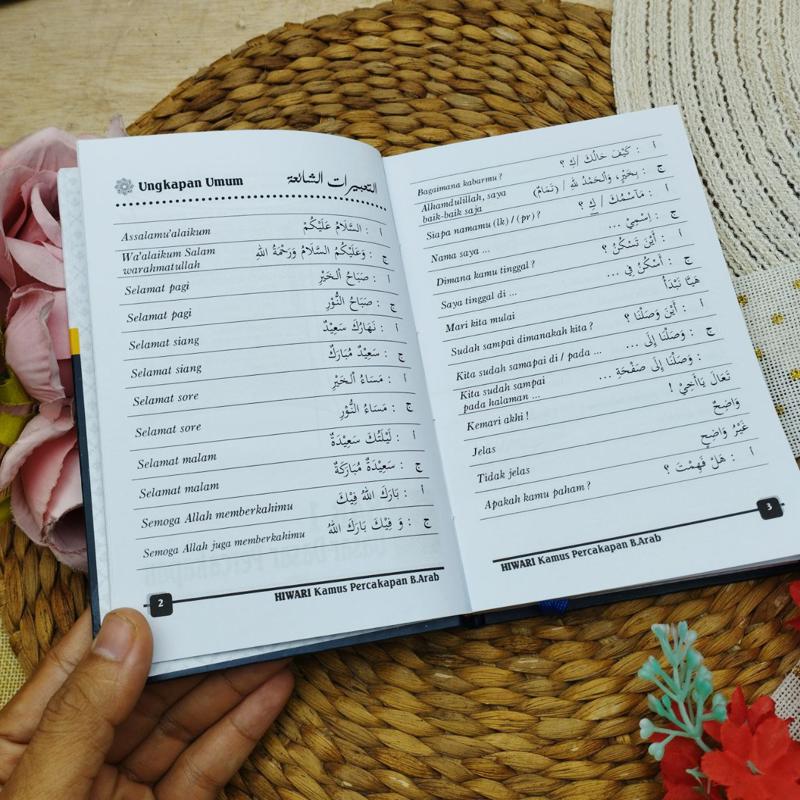 Ungkapan Umum التعبيرات الشائعة
Assalamu'alaikum أ : السَّلَامُ عَلَيْكُمْ
Wa'alaikum Salam warahmatullah ج : وَعَلَيْكُمُ السَّلَامُ وَرَحْمَةُ اللهِ
Selamat pagi أ : صَبَاحُ الْخَيْرِ
Selamat pagi ج : صَبَاحُ النُّوْرِ
Selamat siang أ : نَهَارُكَ سَعِيْدٌ
Selamat siang ج : سَعِيْدٌ مُبَارَكٌ
Selamat sore أ : مَسَاءُ الْخَيْرِ
Selamat sore ج : مَسَاءُ النُّوْرِ
Selamat malam أ : لَيْلَتُكَ سَعِيْدَةٌ
Selamat malam ج : سَعِيْدَةٌ مُبَارَكَةٌ
Semoga Allah memberkahimu أ : بَارَكَ اللهُ فِيْكَ
Semoga Allah juga memberkahimu ج : وَ فِيْكَ بَارَكَ اللهُ
2 HIWARI Kamus Percakapan B.Arab
Bagaimana kabarmu? أ : كَيْفَ حَالُكَ /كِ ؟
Alhamdulillah, saya baik-baik saja ج : بِخَيْرٍ، وَالْحَمْدُ لِلهِ / (تَمَامٌ)
Siapa namamu (lk) / (pr) ? أ : مَاسْمُكَ / كِ ؟
Nama saya ... ج : اِسْمِيْ ...
Dimana kamu tinggal? أ : أَيْنَ تَسْكُنُ ؟
Saya tinggal di ... ج : أَسْكُنُ فِي ...
Mari kita mulai هَيَّا نَبْدَأْ
Sudah sampai dimanakah kita? أ : أَيْنَ وَصَلْنَا ؟
Kita sudah samapai di / pada ... ج : وَصَلْنَا إِلَى ...
Kita sudah sampai pada halaman ... : وَصَلْنَا إِلَى صَفْحَةِ ...
Kemari akhi ! تَعَالَ يَاأَخِيْ !
Jelas وَاضِحٌ
Tidak jelas غَيْرُ وَاضِحٍ
Apakah kamu paham? أ : هَلْ فَهِمْتَ ؟
HIWARI Kamus Percakapan B.Arab 3